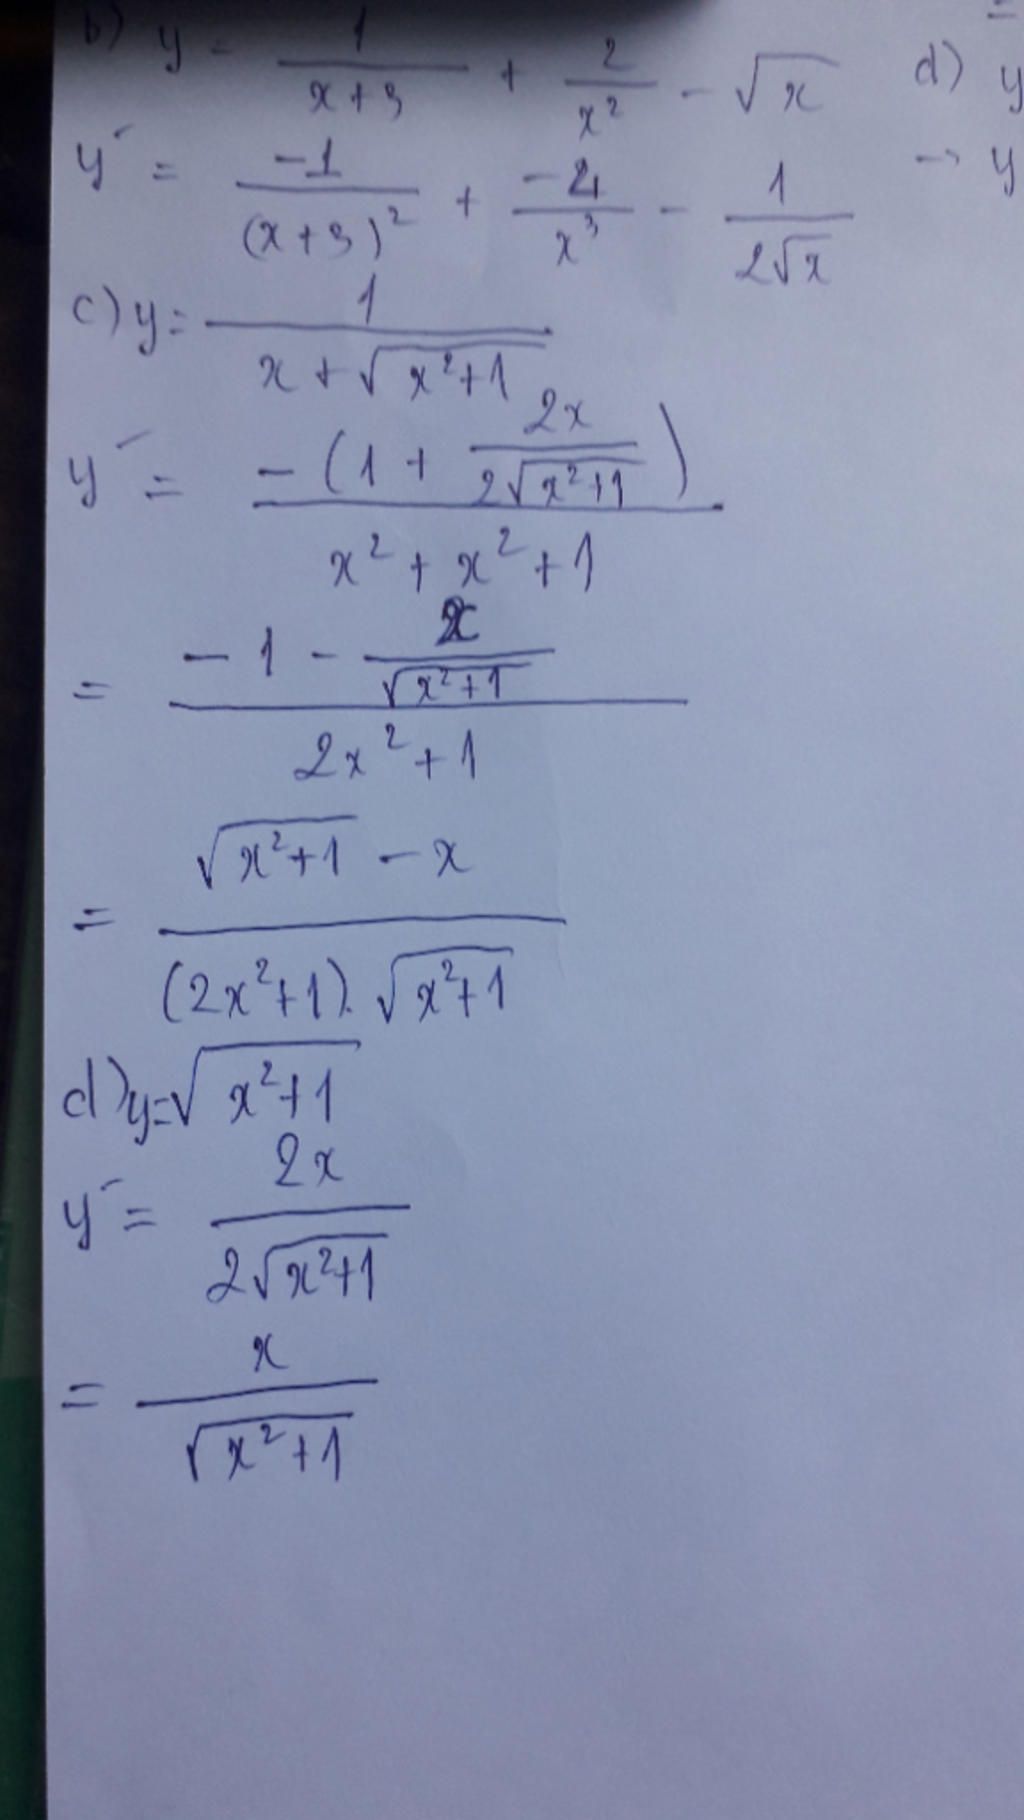 b) y = 1/(x+3) + 2/x² - √x
y' = -1/(x+3)² + -4/x³ - 1/(2√x)
c) y = 1/(x + √(x²+1))
y' = -(1 + 2x/(2√(x²+1)))/(x² + x² + 1)
= (-1 - x/√(x²+1))/(2x² + 1)
= (√(x²+1) - x)/((2x²+1).√(x²+1))
d) y = √(x²+1)
y' = 2x/(2√(x²+1))
= x/√(x²+1)
=
d) y
→ y